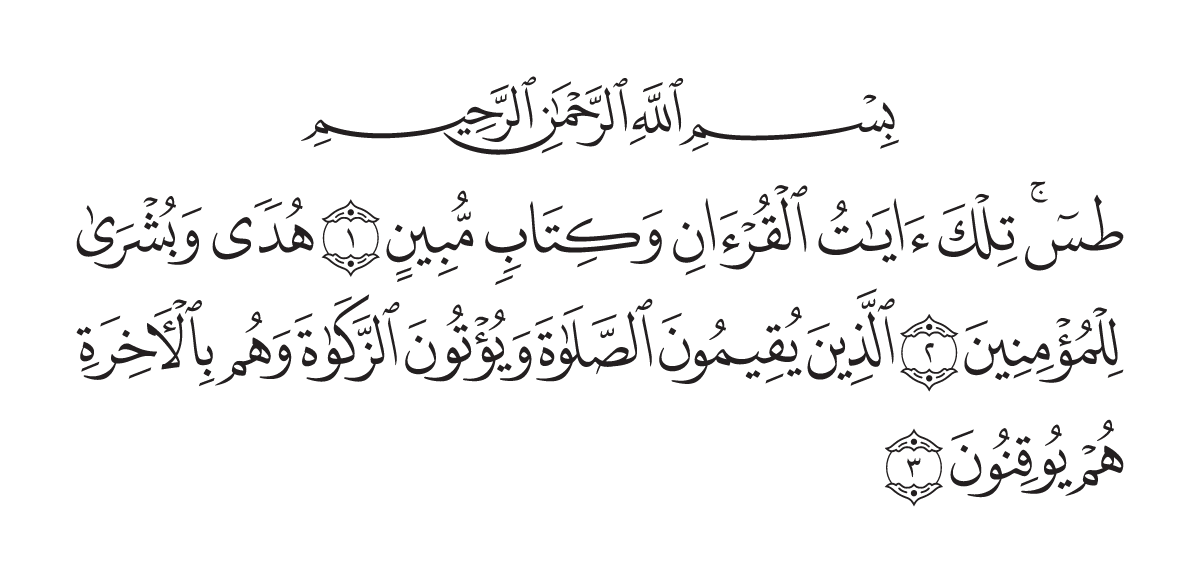 بِسْمِ ٱللَّهِ ٱلرَّحْمَٰنِ ٱلرَّحِيمِ
طسٓ ۚ تِلْكَ ءَايَٰتُ ٱلْقُرْءَانِ وَكِتَابٍ مُّبِينٍ ١ هُدًى وَبُشْرَىٰ
لِلْمُؤْمِنِينَ ٢ ٱلَّذِينَ يُقِيمُونَ ٱلصَّلَوٰةَ وَيُؤْتُونَ ٱلزَّكَوٰةَ وَهُم بِٱلْأَخِرَةِ
هُمْ يُوقِنُونَ ٣